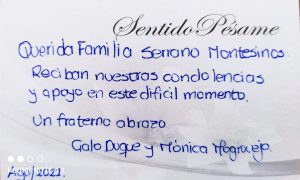 Sentido Pésame
Querida Familia Serrano Montesinos
Reciban nuestras condolencias
y apoyo en este dificil momento.
Un fraterno abrazo
Galo Duque y Mónica Mogrovejo
Ago/2021.